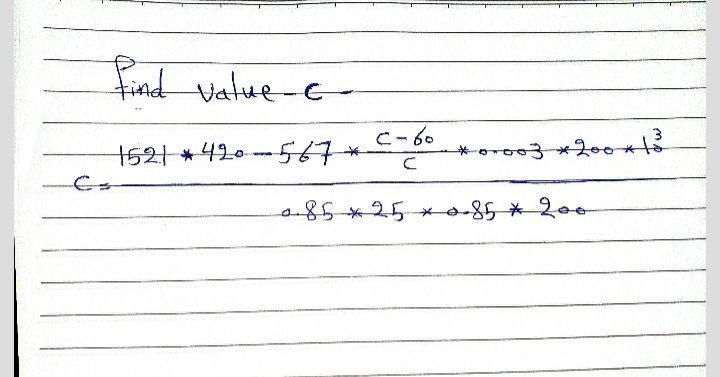 find value - c -
1521 * 420 - 567 * (c - 60)/c * 0.003 * 200 * 10³
c =
0.85 * 25 * 0.85 * 200